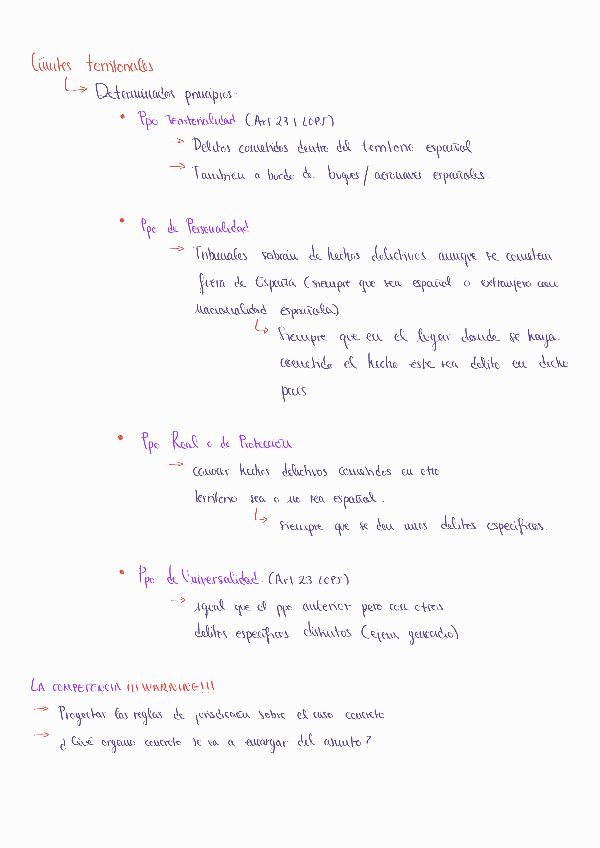 Límites territoriales
↳ Determinados principios.
• Ppo Territorialidad (Art 23.1 LOPJ)
→ Delitos cometidos dentro del territorio español
→ También a bordo de buques/aeronaves españoles.
• Ppo de Personalidad
→ Tribunales sabrán de hechos delictivos aunque se cometan
fuera de España (siempre que sea español o extranjero con
nacionalidad española)
↳ Siempre que en el lugar donde se haya
cometido el hecho éste sea delito en dicho
país
• Ppo Real o de Protección
→ conocer hechos delictivos cometidos en otro
territorio sea o no sea español.
↳ siempre que se den unos delitos específicos.
• Ppo de Universalidad. (Art 23 LOPJ)
→ igual que el ppo anterior pero con otros
delitos específicos distintos (ejem genocidio)
LA COMPETENCIA ¡¡¡WARNING!!!
→ Proyectar las reglas de jurisdicción sobre el caso concreto
→ ¿Qué órgano concreto se va a encargar del asunto?